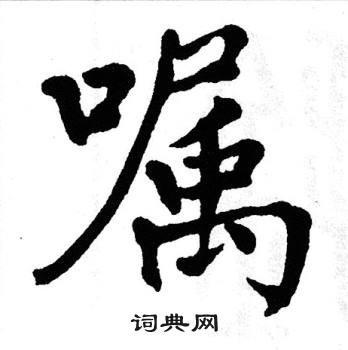 嘱
词典网